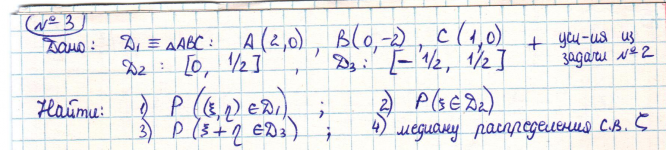 №3
Дано: D₁ ≡ ΔABC: A(2,0), B(0,-2), C(1,0) + усл-ия из
D₂: [0, 1/2], D₃: [-1/2, 1/2] задачи №2
Найти: 1) P((ξ,η) ∈ D₁); 2) P(ξ ∈ D₂)
3) P(ξ+η ∈ D₃); 4) медиану распределения с.в. ζ